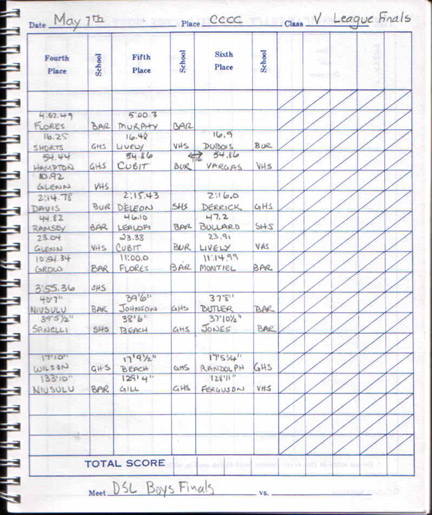 Date May 7th Place CCCC Class V League Finals
Fourth Place School Fifth Place School Sixth Place School
4:52.49 5:00.3
FLORES BAR MURPHY BAR
16.25 16.48 16.9
SHORTS GHS LIVELY VHS DUBOIS BUR
54.44 54.86 ⇔ 54.86
HAMPTON GHS CUBIT BUR VARGAS VHS
10.92
GLENN VHS
2:14.78 2:15.43 2:16.0
DAVIS BUR DELEON SHS DERRICK GHS
44.82 46.10 47.2
RAMSEY BAR LEALOFI BAR BULLARD SHS
23.04 23.38 23.91
GLENN VHS CUBIT BUR LIVELY VHS
10:54.34 11:00.0 11:14.99
GROW BAR FLORES BAR MONTIEL BAR
3:55.36 SHS
40'7" 39'6" 37'8"
NIUSULU BAR JOHNSON GHS BUTLER BAR
39'5½" 38'6" 37'10½"
SPINELLI SHS BEACH GHS JONES BAR
17'10" 17'9½" 17'5¼"
WILSON GHS BEACH GHS RANDOLPH GHS
133'10" 129'4" 128'11"
NIUSULU BAR GILL GHS FERGUSON VHS
TOTAL SCORE
Meet DSL Boys Finals vs.